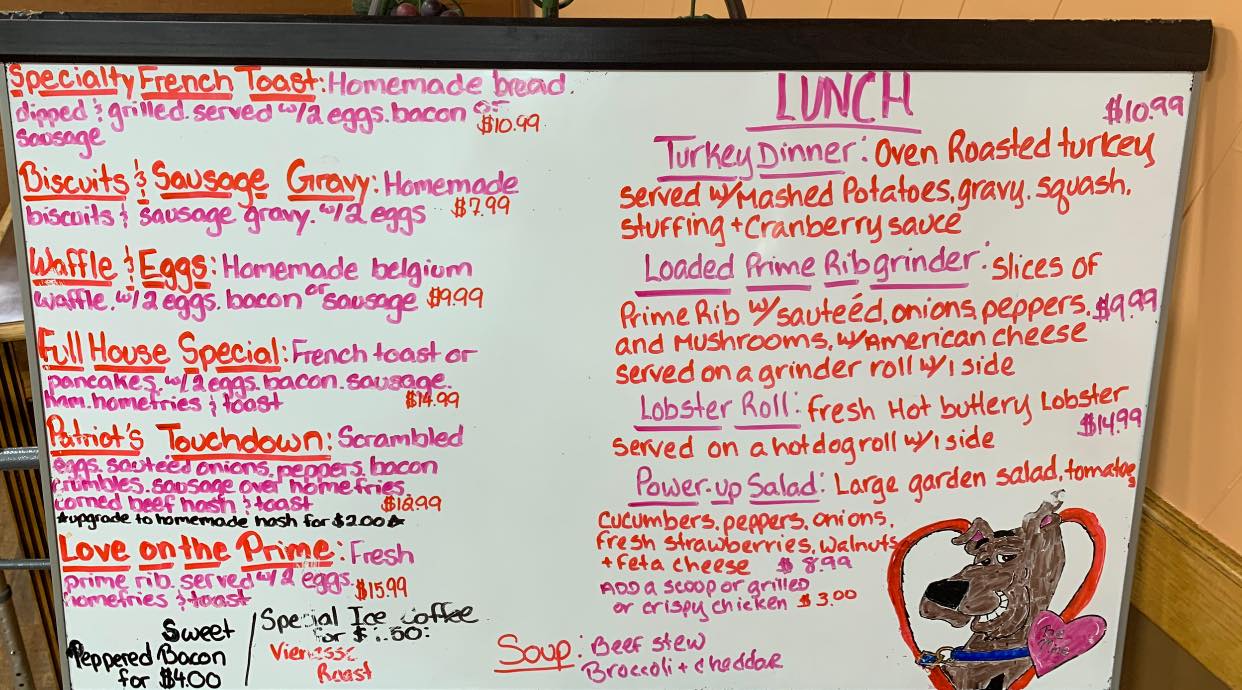 Specialty French Toast: Homemade bread
dipped & grilled. served w/2 eggs. bacon or
sausage $10.99
Biscuits & Sausage Gravy: Homemade
biscuits & sausage gravy. w/2 eggs $7.99
Waffle & Eggs: Homemade belgium
waffle. w/2 eggs. bacon or sausage $9.99
Full House Special: French toast or
pancakes. w/2 eggs. bacon. sausage.
ham. homefries & toast $14.99
Patriot's Touchdown: Scrambled
eggs. sauteéd onions, peppers, bacon
crumbles. sausage over homefries
corned beef hash & toast
*upgrade to homemade hash for $2.00*
Love on the Prime: Fresh
prime rib. served w/2 eggs.
homefries & toast $15.99
Sweet
Peppered Bacon
for $4.00
Special Ice Coffee
for
Roast
LUNCH
$10.99
Turkey Dinner: Oven Roasted turkey
served w/Mashed Potatoes, gravy, squash,
stuffing + Cranberry sauce
Loaded Prime Rib grinder: slices of
Prime Rib w/sauteéd, onions, peppers, $9.99
and Mushrooms, w/American cheese
served on a grinder roll w/1 side
Lobster Roll: fresh Hot buttery Lobster
$14.99
served on a hotdog roll w/1 side
Power-up Salad: Large garden salad, tomatoes
cucumbers, peppers, onions,
fresh strawberries, walnuts
+ feta cheese $8.99
ADD a scoop or grilled
or crispy chicken $3.00
Soup: Beef stew
Broccoli + cheddar